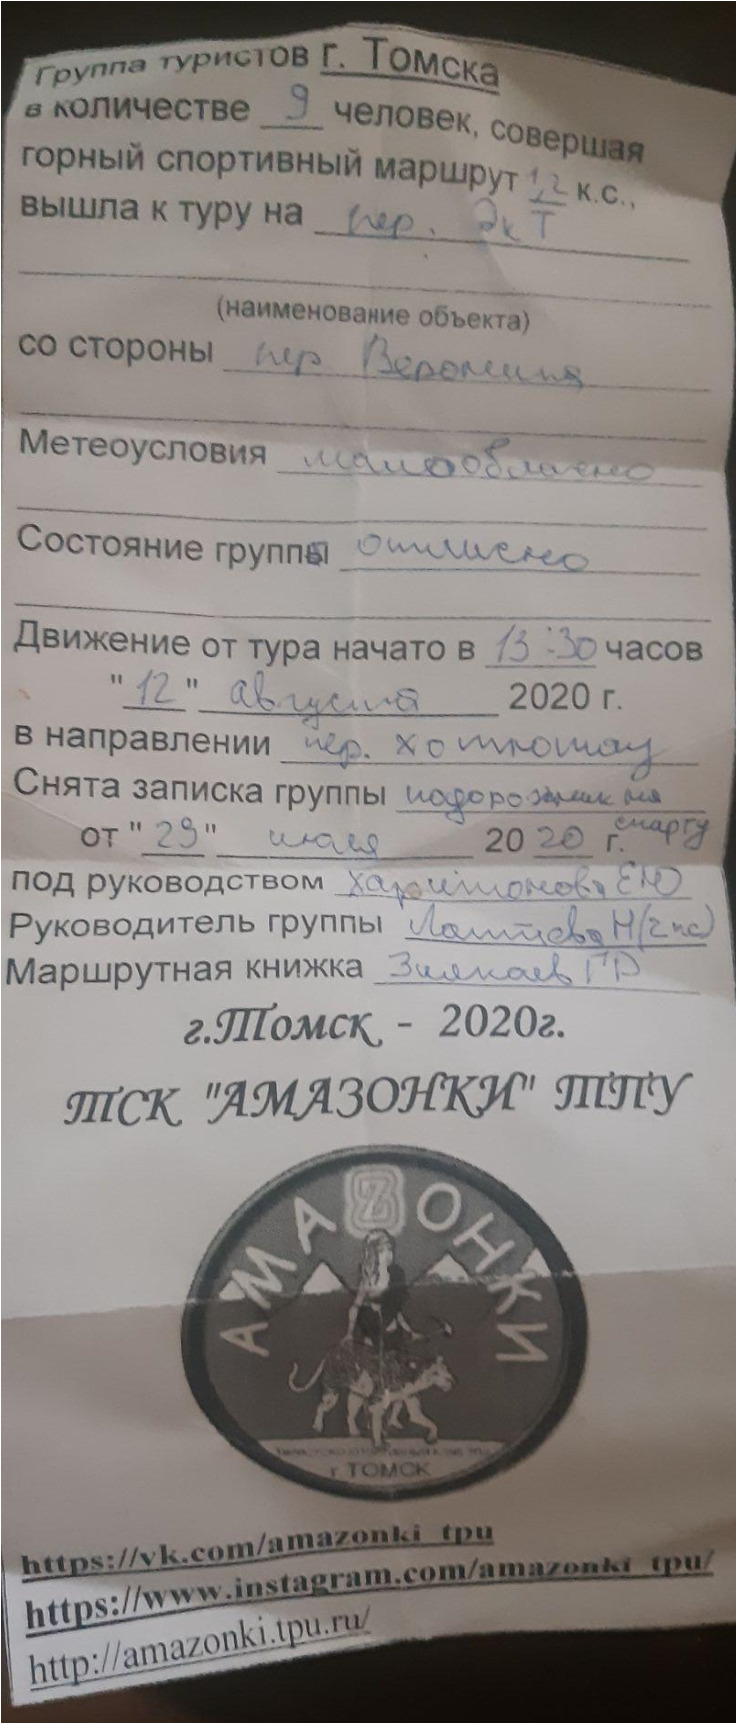 Группа туристов г. Томска
в количестве 9 человек, совершая
горный спортивный маршрут 1,2 к.с.,
вышла к туру на пер. ЭкТ
(наименование объекта)
со стороны пер Вероники
Метеоусловия малооблачно
Состояние группы отлично
Движение от тура начато в 13:30 часов
"12" августа 2020 г.
в направлении пер.
Снята записка группы подорожник на
смарту
от "29" июля 2020 г.
под руководством Харитонова ЕЮ
Руководитель группы Лаптева Н
Маршрутная книжка ГР
г.Томск - 2020г.
ТСК "АМАЗОНКИ" ТПУ
АМАZОНКИ
г ТОМСК
https://vk.com/amazonki_tpu
https://www.instagram.com/amazonki_tpu/
http://amazonki.tpu.ru/